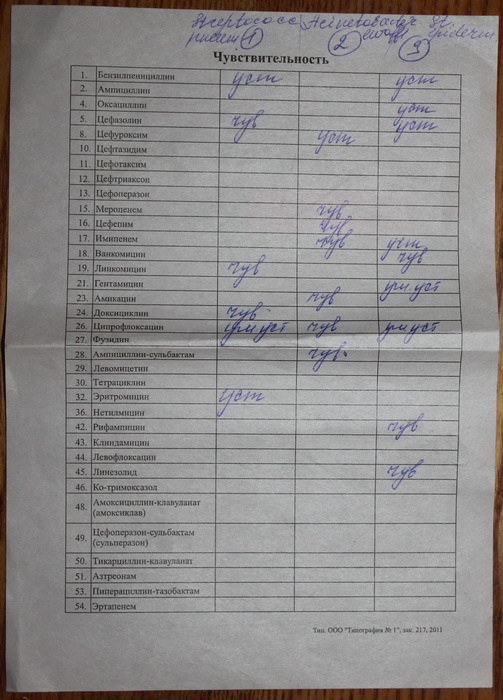 Streptococc Acinetobacter St.
① ② ③ epiderm
Чувствительность
1. Бензилпенициллин уст уст
2. Ампициллин
4. Оксациллин уст
5. Цефазолин чув уст
8. Цефуроксим уст
10. Цефтазидим
11. Цефотаксим
12. Цефтриаксон
13. Цефоперазон
15. Меропенем чув
16. Цефепим чув
17. Имипенем чув уст
18. Ванкомицин чув
19. Линкомицин чув
21. Гентамицин ум уст
23. Амикацин чув
24. Доксициклин чув
26. Ципрофлоксацин ум уст чув ум уст
27. Фузидин
28. Ампициллин-сульбактам чув
29. Левомицетин
30. Тетрациклин
32. Эритромицин уст
36. Нетилмицин
42. Рифампицин чув
43. Клиндамицин
44. Левофлоксацин
45. Линезолид чув
46. Ко-тримоксазол
48. Амоксициллин-клавуланат
(амоксиклав)
49. Цефоперазон-сульбактам
(сульперазон)
50. Тикарциллин-клавуланат
51. Азтреонам
53. Пиперациллин-тазобактам
54. Эртапенем
Тип. ООО "Типография № 1", зак. 217, 2011